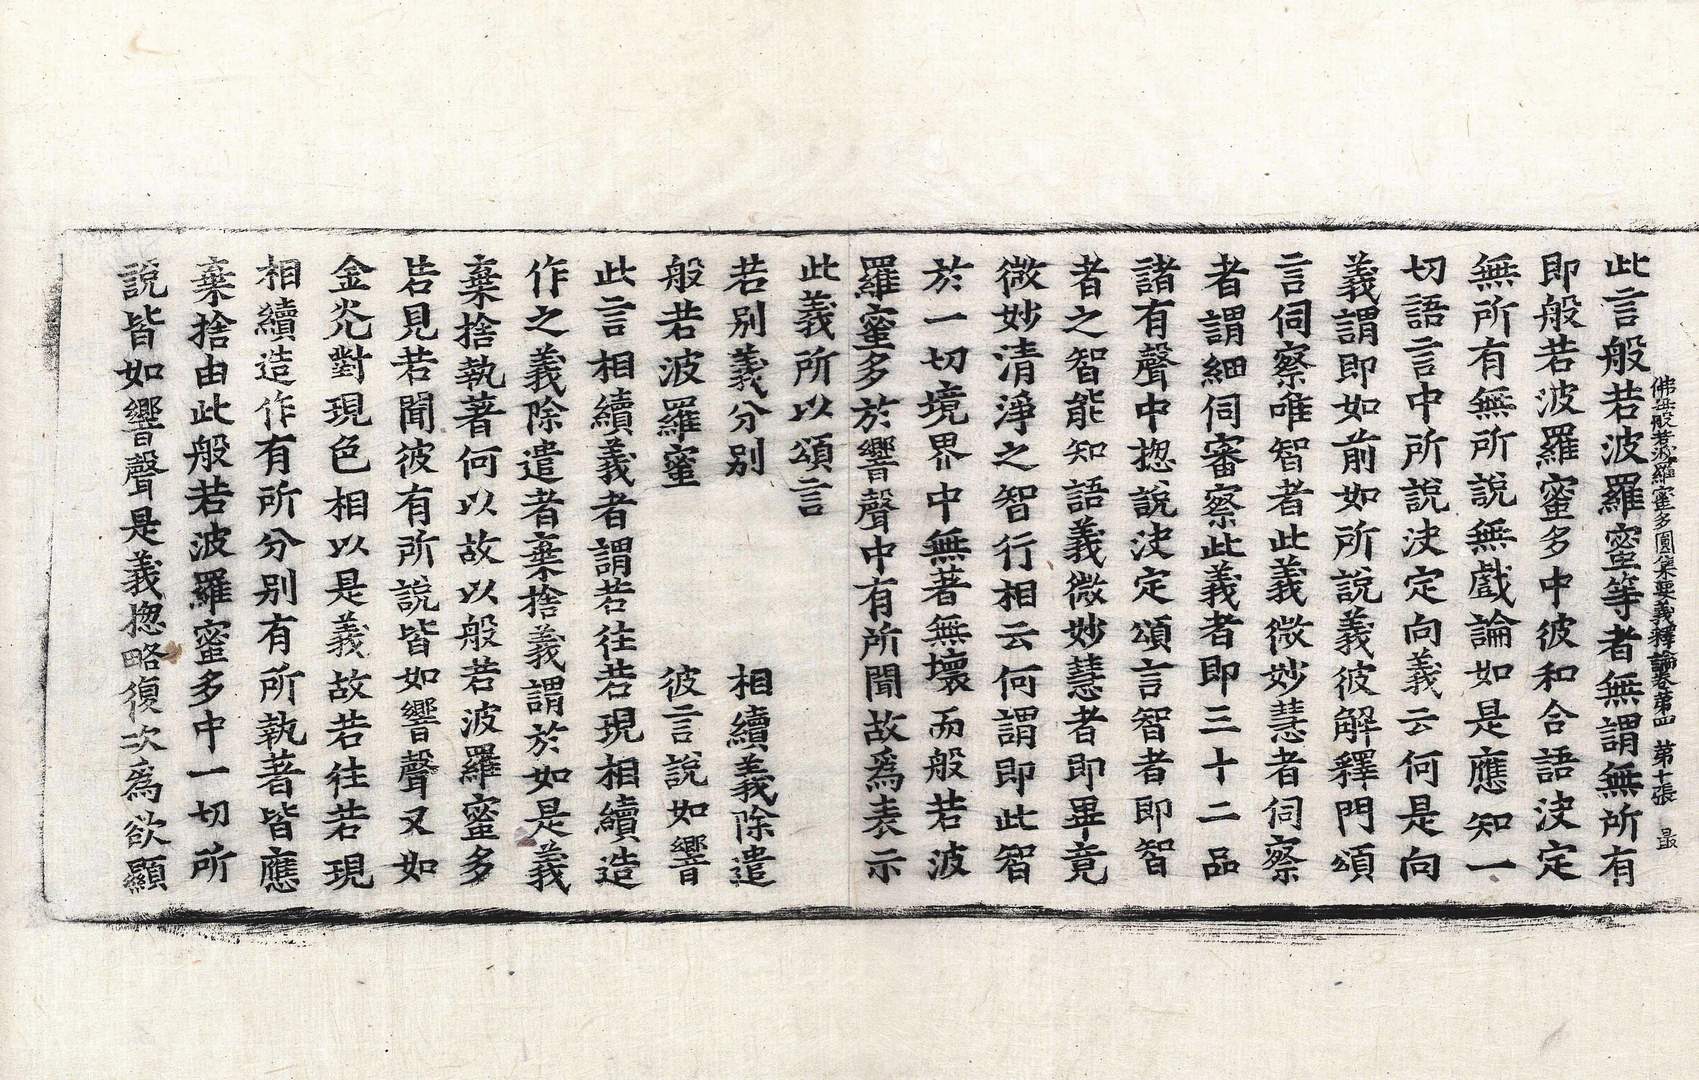 佛母般若波羅蜜多圓集要義釋論卷第四 第十張 最
此言般若波羅蜜等者無謂無所有
即般若波羅蜜多中彼和合語決定
無所有無所說無戲論如是應知一
切語言中所說決定向義云何是向
義謂即如前如所說義彼解釋門頌
言伺察唯智者此義微妙慧者伺察
者謂細伺審察此義者即三十二品
諸有聲中揔說決定頌言智者即智
者之智能知語義微妙慧者即畢竟
微妙清淨之智行相云何謂即此智
於一切境界中無著無壞而般若波
羅蜜多於響聲中有所聞故爲表示
此義所以頌言
若別義分別 相續義除遣
般若波羅蜜 彼言說如響
此言相續義者謂若往若現相續造
作之義除遣者棄捨義謂於如是義
棄捨執著何以故以般若波羅蜜多
若見若聞彼有所說皆如響聲又如
金光對現色相以是義故若往若現
相續造作有所分別有所執著皆應
棄捨由此般若波羅蜜多中一切所
說皆如響聲是義揔略復次爲欲顯